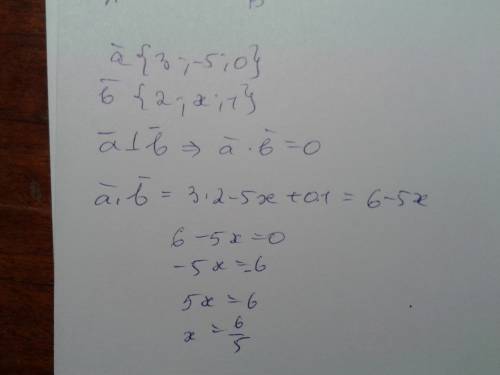 ā {3;-5;0}
b̄ {2;x;1}
ā⊥b̄ ⇒ ā·b̄=0
ā·b̄ = 3·2-5x+0·1 = 6-5x
6-5x=0
-5x=-6
5x=6
x=6/5